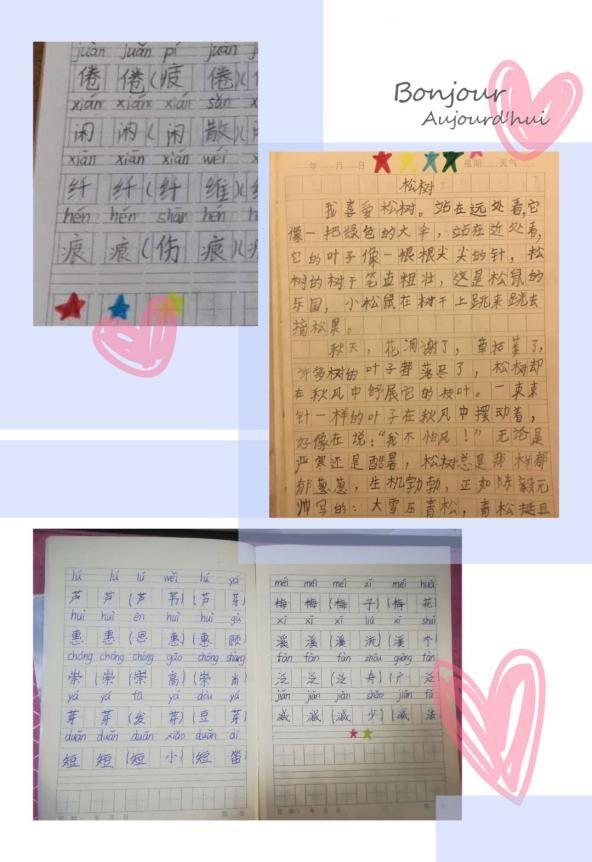 juàn juàn pí juàn
倦 倦 (疲 倦)(
xián xián xián sǎn
闲 闲 (闲 散)(
xiān xiān xiān wéi
纤 纤 (纤 维)(
hén hén shāng hén
痕 痕 (伤 痕)(
Bonjour
Aujourd'hui
年 月 日 星期 天气
松树
我喜爱松树。站在远处看,它
像一把绿色的大伞,站在近处看,
它的叶子像一根根尖尖的针,松
树的树干笔直粗壮,这是松鼠的
乐园,小松鼠在树干上跳来跳去
摘松果。
秋天,花凋谢了,草枯萎了,
许多树的叶子都落尽了,松树却
在秋风中舒展它的枝叶。一束束
针一样的叶子在秋风中摆动着,
好像在说:“我不怕风!”无论是
严寒还是酷暑,松树总是那样郁
郁葱葱,生机勃勃,正如陈毅元
帅写的:大雪压青松,青松挺且
lú lú lú wěi lú yá
芦 芦 (芦 苇)(芦 芽)
huì huì ēn huì huì gù
惠 惠 (恩 惠)(惠 顾)
chóng chóng chóng gāo chóng shàng
崇 崇 (崇 高)(崇 尚)
yá yá fā yá dòu yá
芽 芽 (发 芽)(豆 芽)
duǎn duǎn duǎn xiǎo duǎn dí
短 短 (短 小)(短 笛)
méi méi méi zi méi huā
梅 梅 (梅 子)(梅 花)
xī xī xī liú xī shuǐ
溪 溪 (溪 流)(溪 水)
fàn fàn fàn zhōu guǎng fàn
泛 泛 (泛 舟)(广 泛)
jiǎn jiǎn jiǎn shǎo jiǎn fǎ
减 减 (减 少)(减 法)